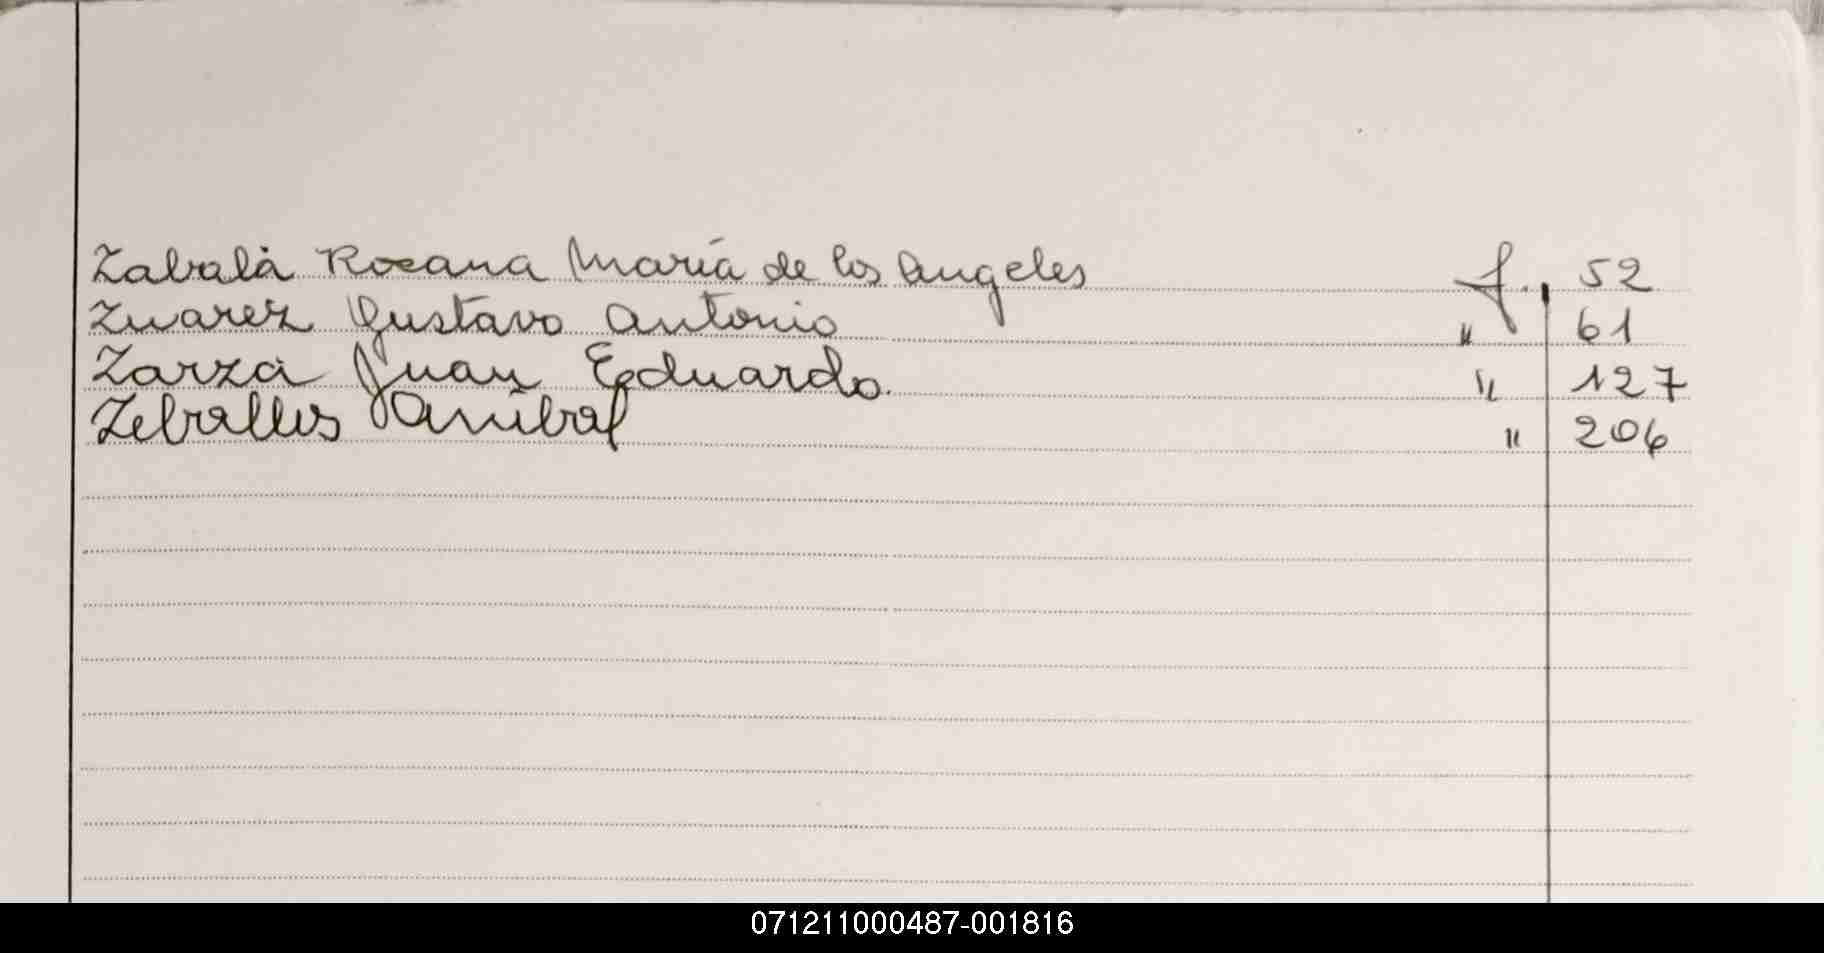 Zabala Roxana María de los Angeles f. 52
Zuarez Gustavo Antonio " 61
Zarza Juan Eduardo. " 127
Zeballos Anibal " 206
071211000487-001816